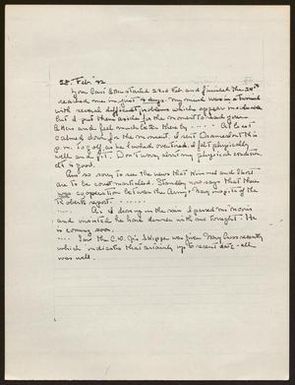 28 Feb '42
Your last letter started 22nd Feb and finished the 24th
reached me in just 4 days. My mind was in a turmoil
with several different problems which appear
but I put them aside for the moment to read your
letters and feel much better thereby --- At least
calmed down for the moment. I sent this
p.m. to golf as he looked overtired. I felt physically
well and fit. Don't worry about my physical condition,
it's good.
Am so sorry to see the news that Kimmel and Short
are to be court martialed. Stanley now says that there
was cooperation between the Army & Navy inspite of the
Roberts report - - - - - - -
---- As I drove in the rain I passed
and wanted to have dinner with me tonight - He
is coming soon.
.... Saw the C.O. His Skipper was given Navy Cross recently
which indicates that certainly up to recent date - all
was well.